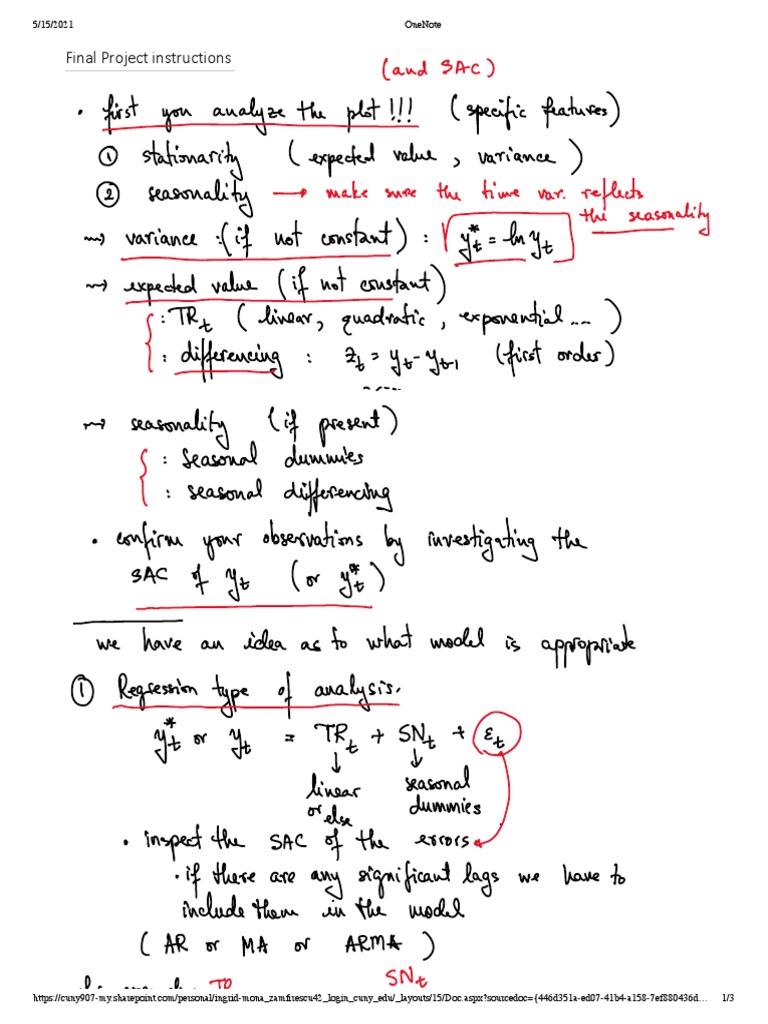 5/15/2021 OneNote
Final Project instructions
(and SAC)
• first you analyze the plot!!! (specific features)
① stationarity (expected value, variance)
② seasonality → make sure the time var. reflects
the seasonality
⇝ variance :(if not constant) : y*t = ln yt
⇝ expected value (if not constant)
: TRt (linear, quadratic, exponential ...)
: differencing : zt = yt - yt-1 (first order)
⇝ seasonality (if present)
: seasonal dummies
: seasonal differencing
• confirm your observations by investigating the
SAC of yt (or y*t)
we have an idea as to what model is appropriate
① Regression type of analysis.
y*t or yt = TRt + SNt + εt
↓ ↓
linear seasonal
or else dummies
• inspect the SAC of the errors
• if there are any significant lags we have to
include them in the model
(AR or MA or ARMA)
TR SNt
https://cuny907-my.sharepoint.com/personal/ingrid-mona_zamfirescu42_login_cuny_edu/_layouts/15/Doc.aspx?sourcedoc={446d351a-ed07-41b4-a158-7ef880436d… 1/3